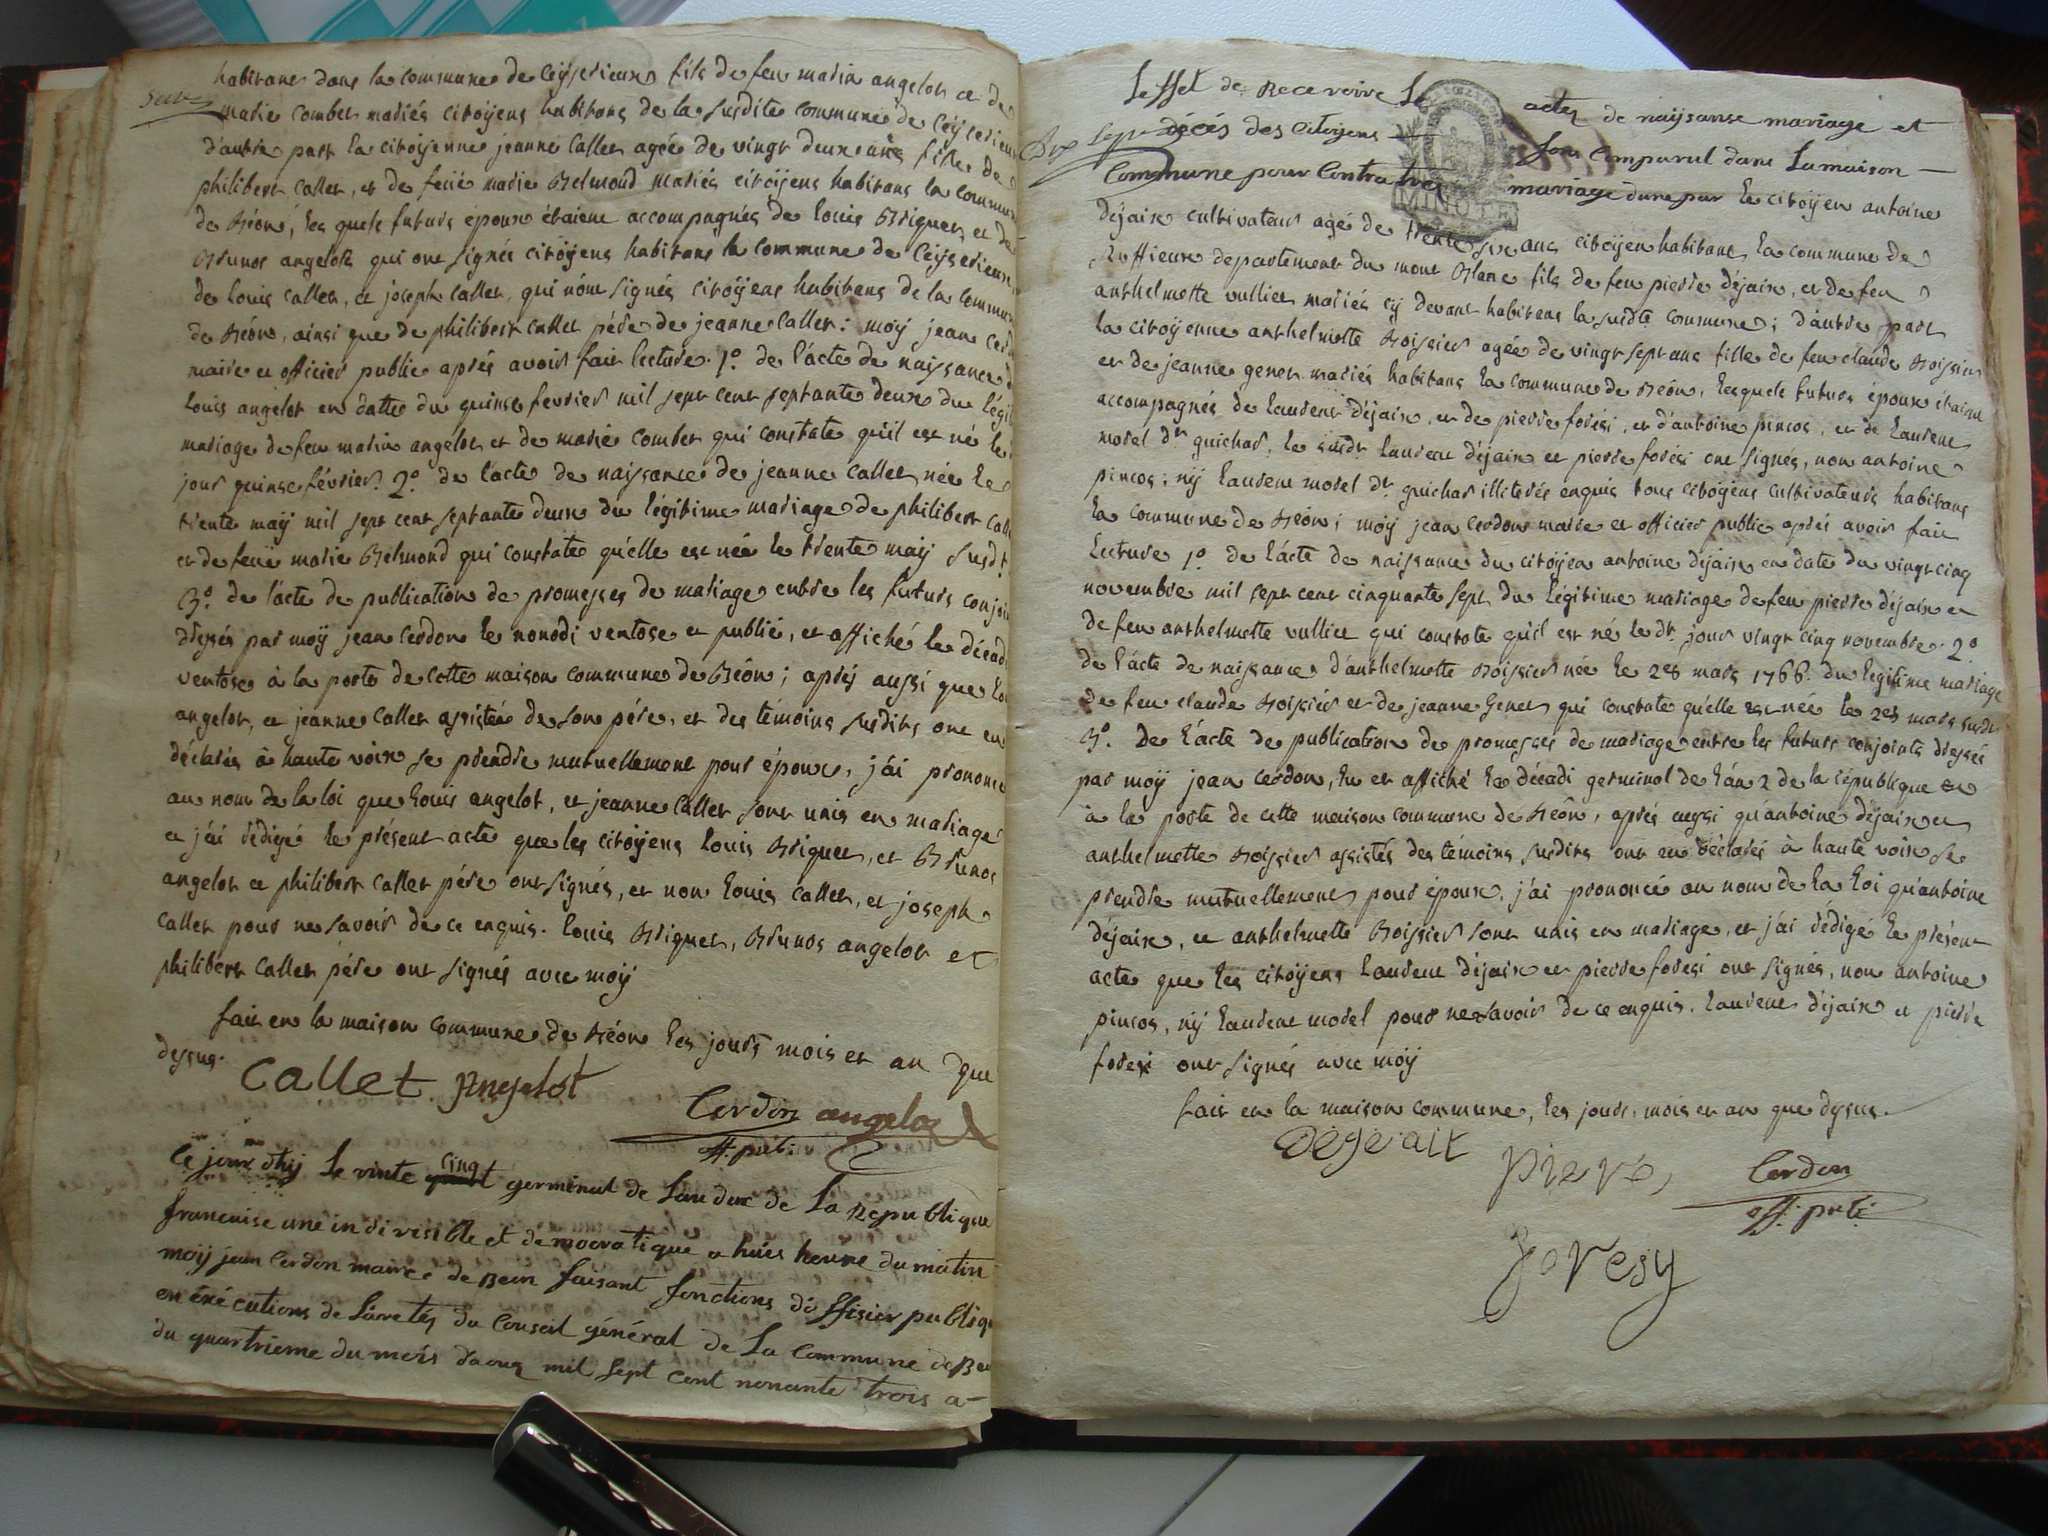 habitant dans la commune de Ceÿserieux fils de feu matin angelot et de
marie combet mariés citoÿens habitans de la susdite commune de Ceÿserieux
d'autre part la citoÿenne jeanne Callet agée de vingt deux ans fille de
philibert callet, et de feüe marie Belmond mariés citoÿens habitans la commun
de Béon, les quels futurs époux étaient accompagnés de louis Briquet, et de
Brunos angelot qui ont signés citoÿens habitans la commune de Ceÿserieux,
de louis callet, et joseph callet, qui n'ont signés citoÿens habitans de la commun
de Béon, ainsi que de philibert callet pére de jeanne callet: moÿ jean Cerd
maire et officier public aprés avoir fait lecture 1º. de l'acte de naissance d
louis angelot en datte du quinse fevrier mil sept cent septante deux du légit
mariage de feu matin angelot et de marie combet qui constate qu'il est né le
jour quinse février. 2º. de l'acte de naissance de jeanne callet née le
trente maÿ mil sept cent septante deux du légitime mariage de philibert Call
et de feüe marie Belmond qui constate qu'elle est née le trente maÿ susdt
3º. de l'acte de publication de promesses de mariage entre les futurs conjoi
dressés par moÿ jean cerdon le nonodi ventose et publié, et affiché le décad
ventose à la porte de cette maison commune de Béon; apréÿ aussi que lou
angelot, et jeanne callet assistée de son pére, et des témoins susdits ont eu
déclarés à haute voix se prendre mutuellement pour époux, j'ai prononcé
au nom de la loi que louis angelot, et jeanne callet sont unis en mariage
et j'ai rédigé le présent acte que les citoÿens louis Briquet, et Brunos
angelot et philibert callet pére ont signés, et non louis callet, et joseph
callet pour ne savoir de ce enquis. louis Briquet, Brunos angelot et
philibert callet pére ont signés avec moÿ
fait en la maison commune de Béon les jours mois et an que
dessus.
Callet Angelot
Cerdon angelot
off. publ.
Ce jour d'huÿ Le vinte cinq germinal de Lan deux de La Republique
francaise une indivisible et democratique a huis heure du matin
moÿ jean Cerdon maire de Beon faisant fonctions d'offisier publique
en éxécutions de L'aretéz du Conseil général de La Commune de Be
du quartrieme du mois daoux mil sept cent nonante trois a
Leffet de Recevoire Le actes de naÿsanse mariage et
décés des Citoÿens Sont Comparut dans La maison
Commune pour Contracter mariage dune par le citoÿen antoine
déjaix cultivateur agé de trente six ans citoÿen habitant la commune de
Ruffieux departement du mont Blanc fils de feu pierre déjaix, et de feu
anthelmette vulliet mariés cÿ devant habitans la susdte commune; d'autre part
la citoÿenne anthelmette Boissier agée de vingt sept ans fille de feu claude Boissier
et de jeanne genet mariés habitans la commune de Béon, lesquels futurs époux étaient
accompagnés de laurent déjaix, et de pierre forési, et d'antoine pincos, et de laurent
morel dt. guichar, le susdt laurent déjaix et pierre forési ont signés, non antoine
pincos, nÿ laurent morel dt. guichar illiterés enquis tous citoÿens cultivateurs habitans
la commune de Béon; moÿ jean Cerdon maire et officier public aprés avoir fait
lecture 1º. de l'acte de naissance du citoÿen antoine déjaix en date du vingt cinq
novembre mil sept cent cinquante sept du légitime mariage de feu pierre déjaix et
de feu anthelmette vulliet qui constate qu'il est né le dt. jour vingt cinq novembre. 2º
de l'acte de naissance d'anthelmette Boissier née le 28 mars 1766. du legitime mariage
de feu claude Boissier et de jeanne Genet qui constate qu'elle est née le 28 mars susdt
3º. De l'acte de publication de promesses de mariage entre les futurs conjoints dressés
par moÿ jean cerdon, lu et affiché le décadi germinal de l'an 2 de la république
à la porte de cette maison commune de Béon, aprés aussi qu'antoine déjaix et
anthelmette Boissier assistés des témoins susdits ont eu déclarés à haute voix se
prendre mutuellement pour époux, j'ai prononcé au nom de la loi qu'antoine
déjaix, et anthelmette Boissier sont unis en mariage, et j'ai rédigé le présent
acte que les citoÿens laurent déjaix et pierre foresi ont signés, non antoine
pincos, nÿ laurent morel pour ne savoir de ce enquis. laurent déjaix et pierre
foresi ont signés avec moÿ
fait en la maison commune, les jours, mois et an que dessus.
Degerait pierre, Cerdon
off. publ.
foresy